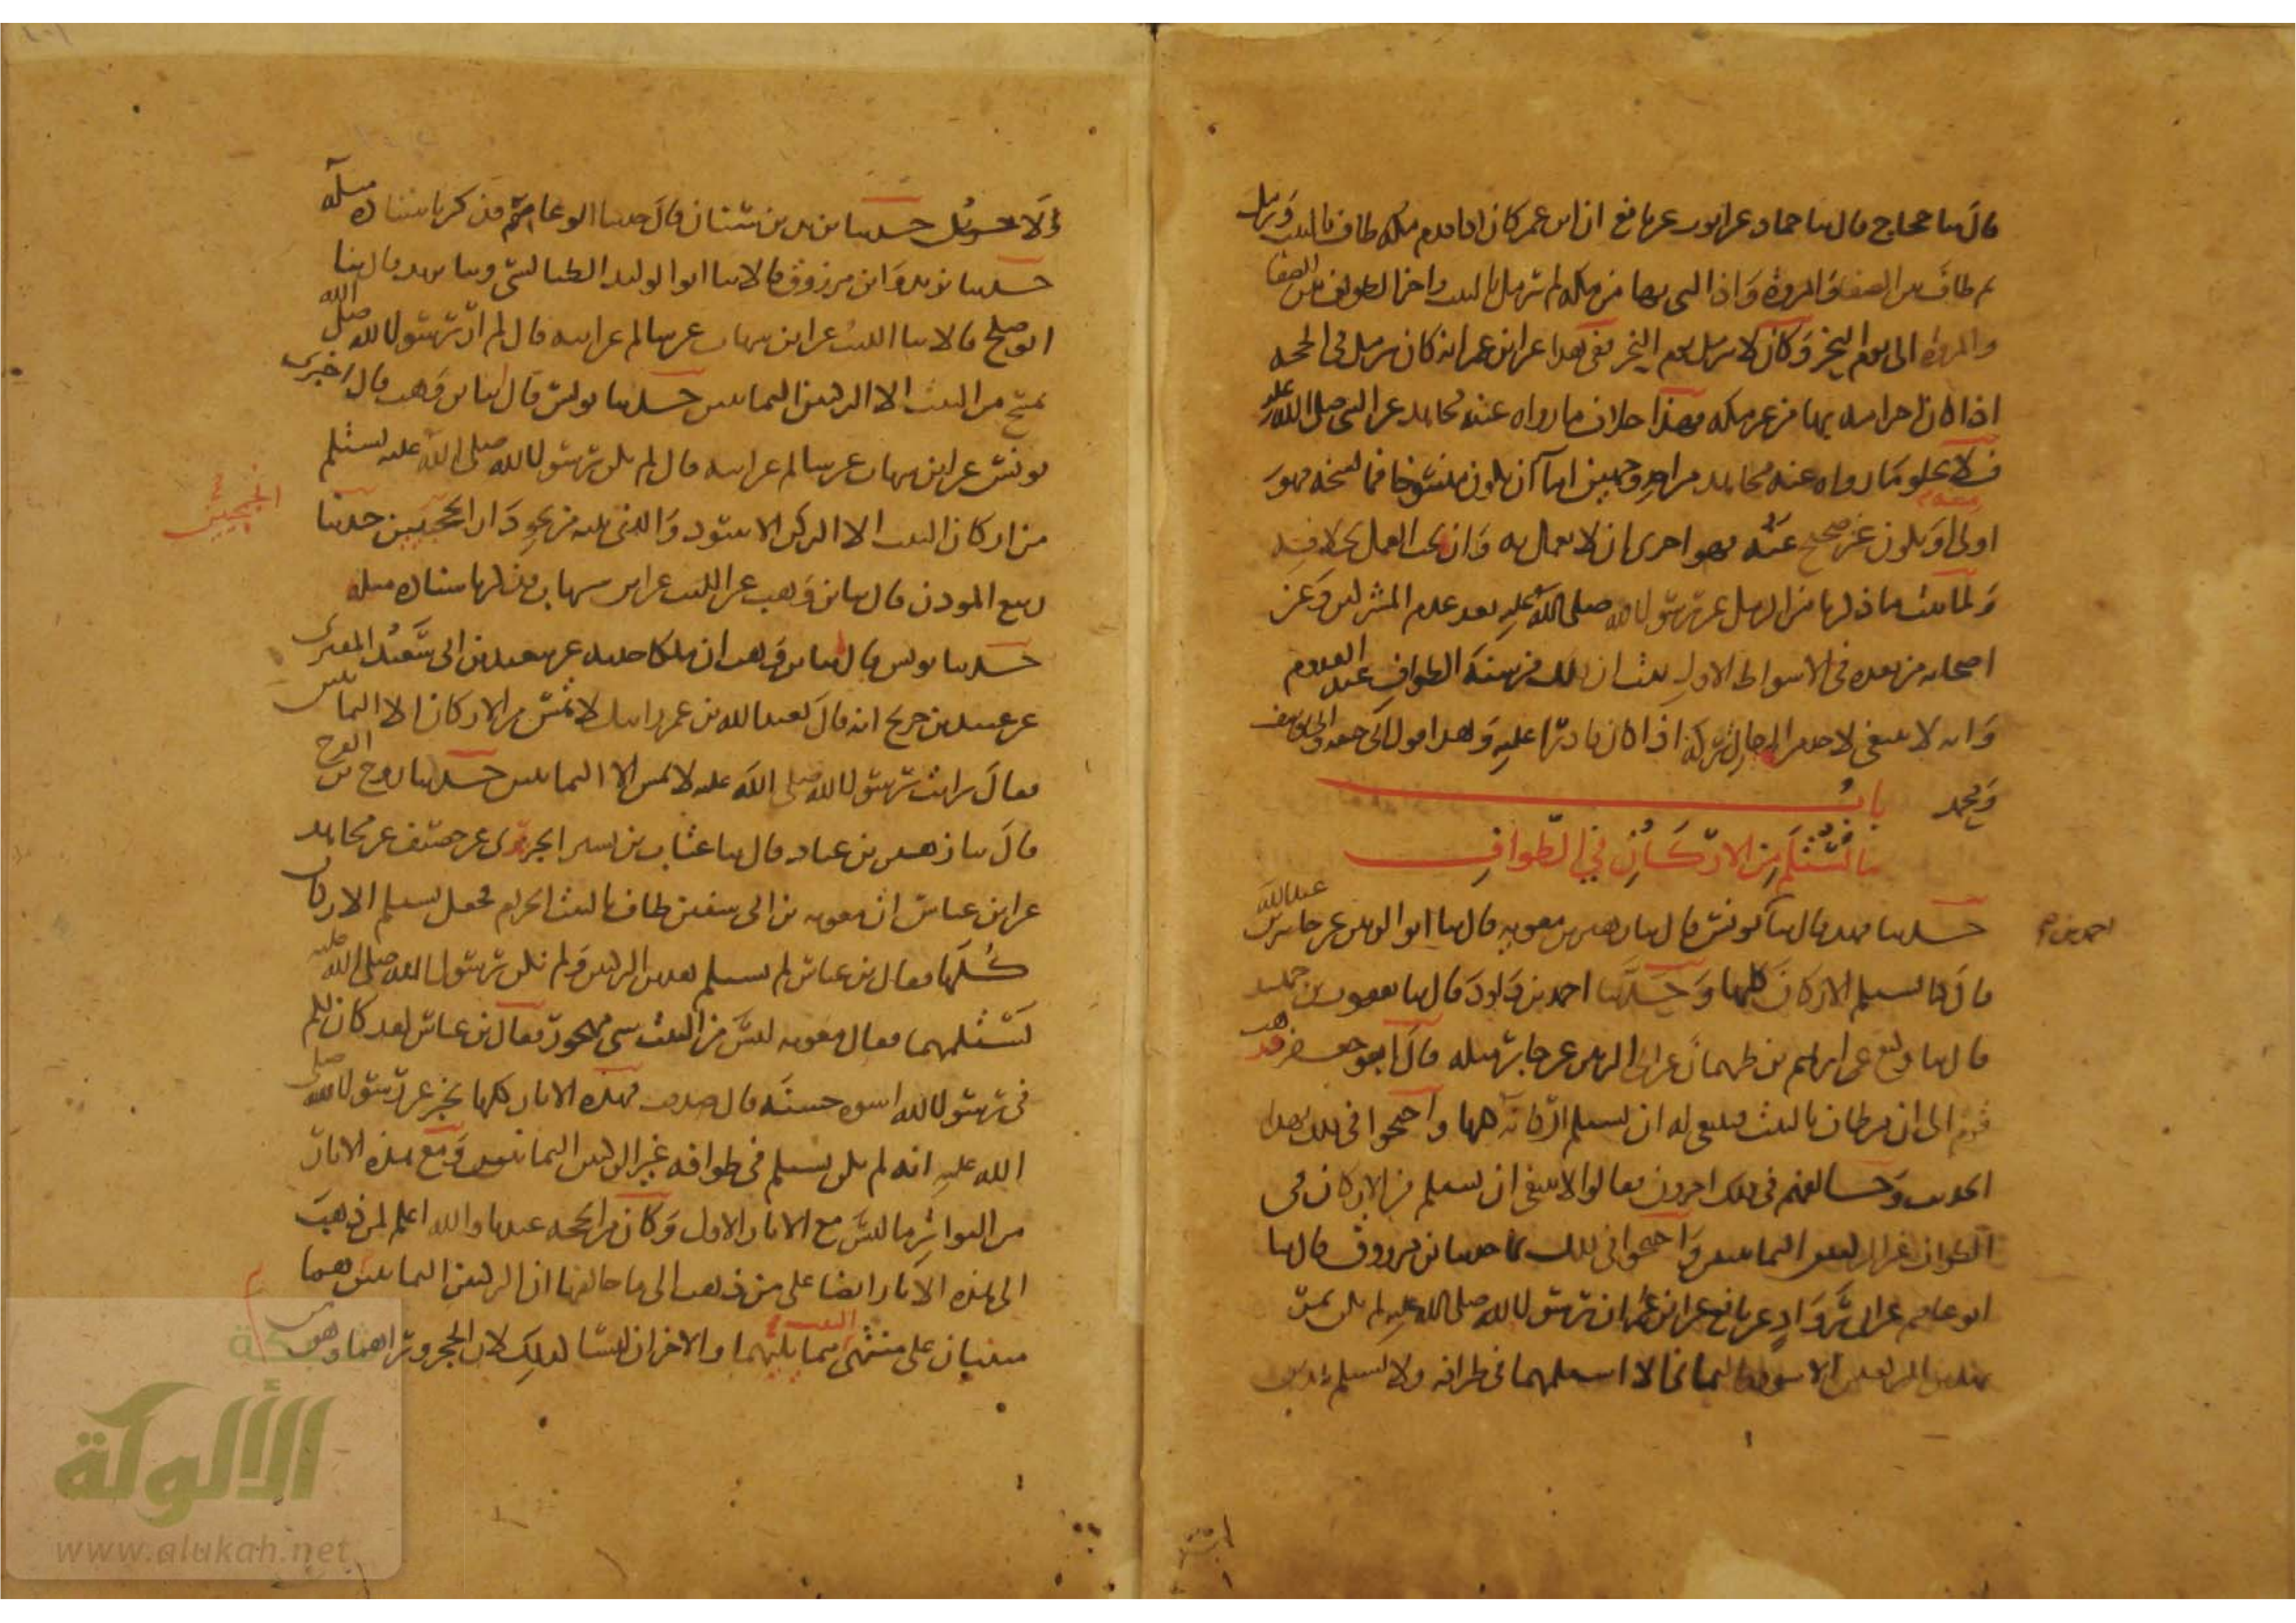 قال ثنا حجاج قال ثنا حماد عن ايوب عن نافع ان ابن عمر كان اذا قدم مكة طاف بالبيت ورمل
ثم طاف بين الصفا والمروة واذا لبى بها من مكة لم يرمل بالبيت واخر الطواف بين الصفا
والمروة الى يوم النحر وكان لا يرمل يوم النحر ففي هذا عن ابن عمر انه كان يرمل في الحجة
اذا كان احرامه بها من غير مكة فهذا خلاف ما رواه عنه مجاهد عن النبي صلى الله عليه
فلا يخلو ما رواه عنه مجاهد من احد وجهين اما ان يكون منسوخا فما نسخه فهو
اولى او يكون غير صحيح عنه فهو احرى ان لا يعمل به وان يجب العمل بخلافه
ولما ثبت ما ذكرنا من الرمل عن رسول الله صلى الله عليه بعد عدم المشركين وعن
اصحابه من بعده في الاشواط الاول ثبت ان ذلك من سنة الطواف عند القدوم
وانه لا ينبغي لاحد من الرجال تركه اذا كان قادرا عليه وهذا قول ابي حنيفة وابي يوسف
ومحمد باب
ما يستلم من الاركان في الطواف
حدثنا فهد قال ثنا احمد بن يونس قال ثنا زهير بن معوية قال ثنا ابو الزبير عن جابر بن عبدالله
قال كنا نستلم الاركان كلها وحدثنا احمد بن داود قال ثنا يعقوب بن حميد
قال ثنا وكيع عن ابرهيم بن طهمان عن ابي الزبير عن جابر مثله قال ابو جعفر فذهب
قوم الى ان من طاف بالبيت فينبغي له ان يستلم اركانه كلها واحتجوا في ذلك بهذا
الحديث وخالفهم في ذلك اخرون فقالوا لا ينبغي ان يستلم من الاركان في
الطواف غير الركنين اليمانيين واحتجوا في ذلك بما حدثنا بن مرزوق قال ثنا
ابو عاصم عن ابن ابي رواد عن نافع عن ابن عمر ان رسول الله صلى الله عليه لم يكن يمر
بهذين الركنين الاسود واليماني الا استلمهما في طوافه ولا يستلم هذين
الاخرين
ولا حدثنا يزيد بن سنان قال حدثنا ابو عاصم فذكر باسناده مثله
حدثنا يزيد وابن مرزوق قالا ثنا ابو الوليد الطيالسي وثنا فهد قال ثنا
ابو صالح قالا ثنا الليث عن ابن شهاب عن سالم عن ابيه قال لم ار رسول الله صلى الله
يمسح من البيت الا الركنين اليمانيين حدثنا يونس قال ثنا ابن وهب قال اخبرني
يونس عن ابن شهاب عن سالم عن ابيه قال لم يكن رسول الله صلى الله عليه يستلم
من اركان البيت الا الركن الاسود والذي يليه من نحو دار الجمحيين حدثنا
الجمحيين
ربيع المؤذن قال ثنا بن وهب عن الليث عن ابن شهاب فذكر باسناده مثله
حدثنا يونس قال ثنا ابن وهب ان ملكا حدثه عن سعيد بن ابي سعيد المقبري
عن عبيد بن جريج انه قال لعبد الله بن عمر رايتك لا تمس من الاركان الا اليمانيين
فقال رايت رسول الله صلى الله عليه لا يمس الا اليمانيين حدثنا روح بن الفرج
قال ثنا زهير بن عباد قال ثنا عتاب بن بشير الجزري عن خصيف عن مجاهد
عن ابن عباس ان معوية بن ابي سفين طاف بالبيت الحرام فجعل يستلم الاركان
كلها فقال بن عباس لم تستلم هذين الركنين ولم يكن رسول الله صلى الله عليه
يستلمهما فقال معوية ليس من البيت شي مهجور فقال بن عباس لقد كان لكم
في رسول الله اسوة حسنة قال صدقت فهذه الاثار كلها تخبر عن رسول الله صلى
الله عليه انه لم يكن يستلم في طوافه غير الركنين اليمانيين ومع هذه الاثار
من التواتر ما ليس مع الاثار الاول وكان من الحجة عندنا والله اعلم لمن ذهب
الى هذه الاثار ايضا على من ذهب الى ما خالفها ان الركنين اليمانيين هما
مبنيان على منتهى البيت مما يليهما والاخران ليسا كذلك لان الحجر وراهما وهو من
الألوكة
www.alukah.net